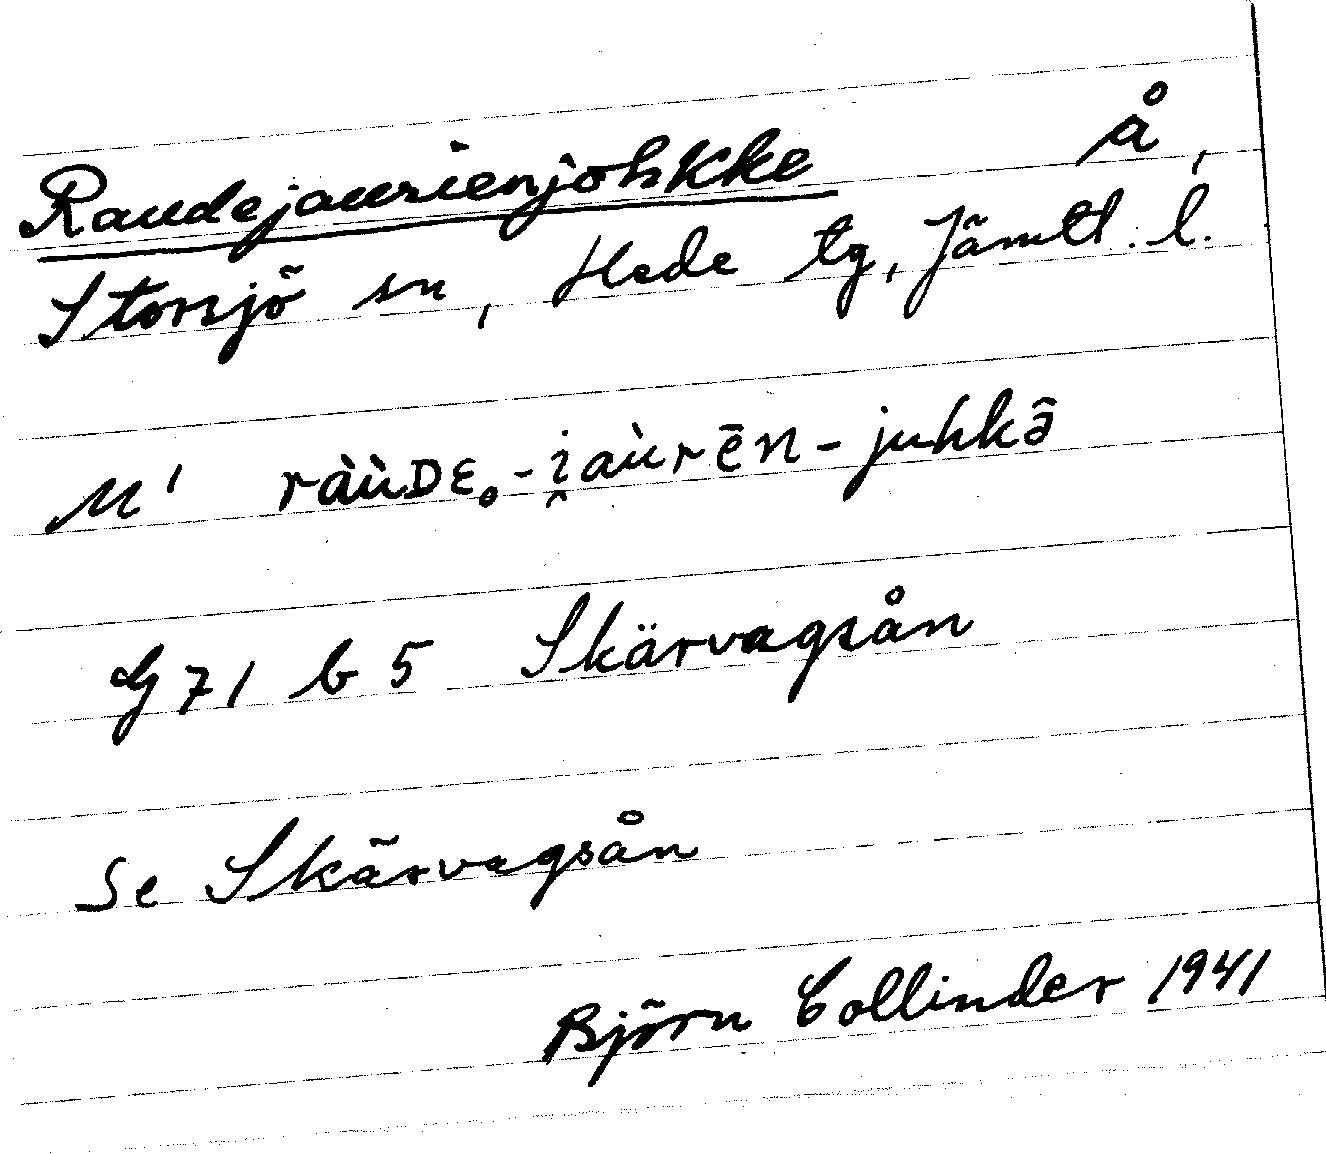 Raudejaurienjohkke å,
Storsjö sn, Hede tg, Jämtl. l.
M' ràùDɛ̥-i̯aùrēn-juhkə̑̄
G 71 b 5 Skärvagsån
Se Skärvagsån
Björn Collinder 1941